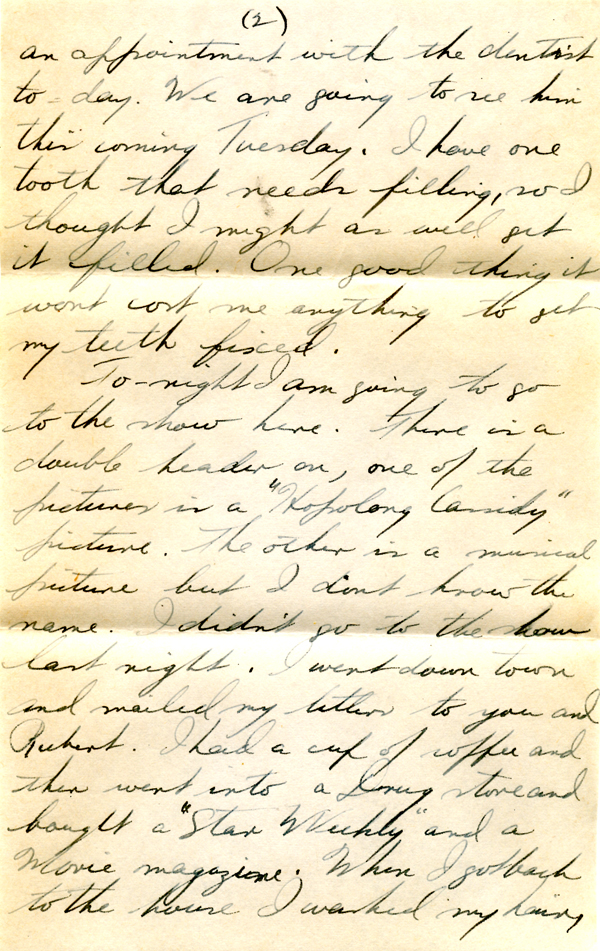 (2)
an appointment with the dentist
to-day. We are going to see him
this coming Tuesday. I have one
tooth that needs filling, so I
thought I might as well get
it filled. One good thing it
wont cost me anything to get
my teeth fixed.
To-night I am going to go
to the show here. There is a
double header on, one of the
pictures is a "Hopolong Cassidy"
picture. The other is a musical
picture but I dont know the
name. I didn't go to the show
last night. I went down town
and mailed my letters to you and
Rubert. I had a cup of coffee and
then went into a Drug store and
bought a "Star Weekly" and a
Movie magazine. When I got back
to the house I washed my hair,